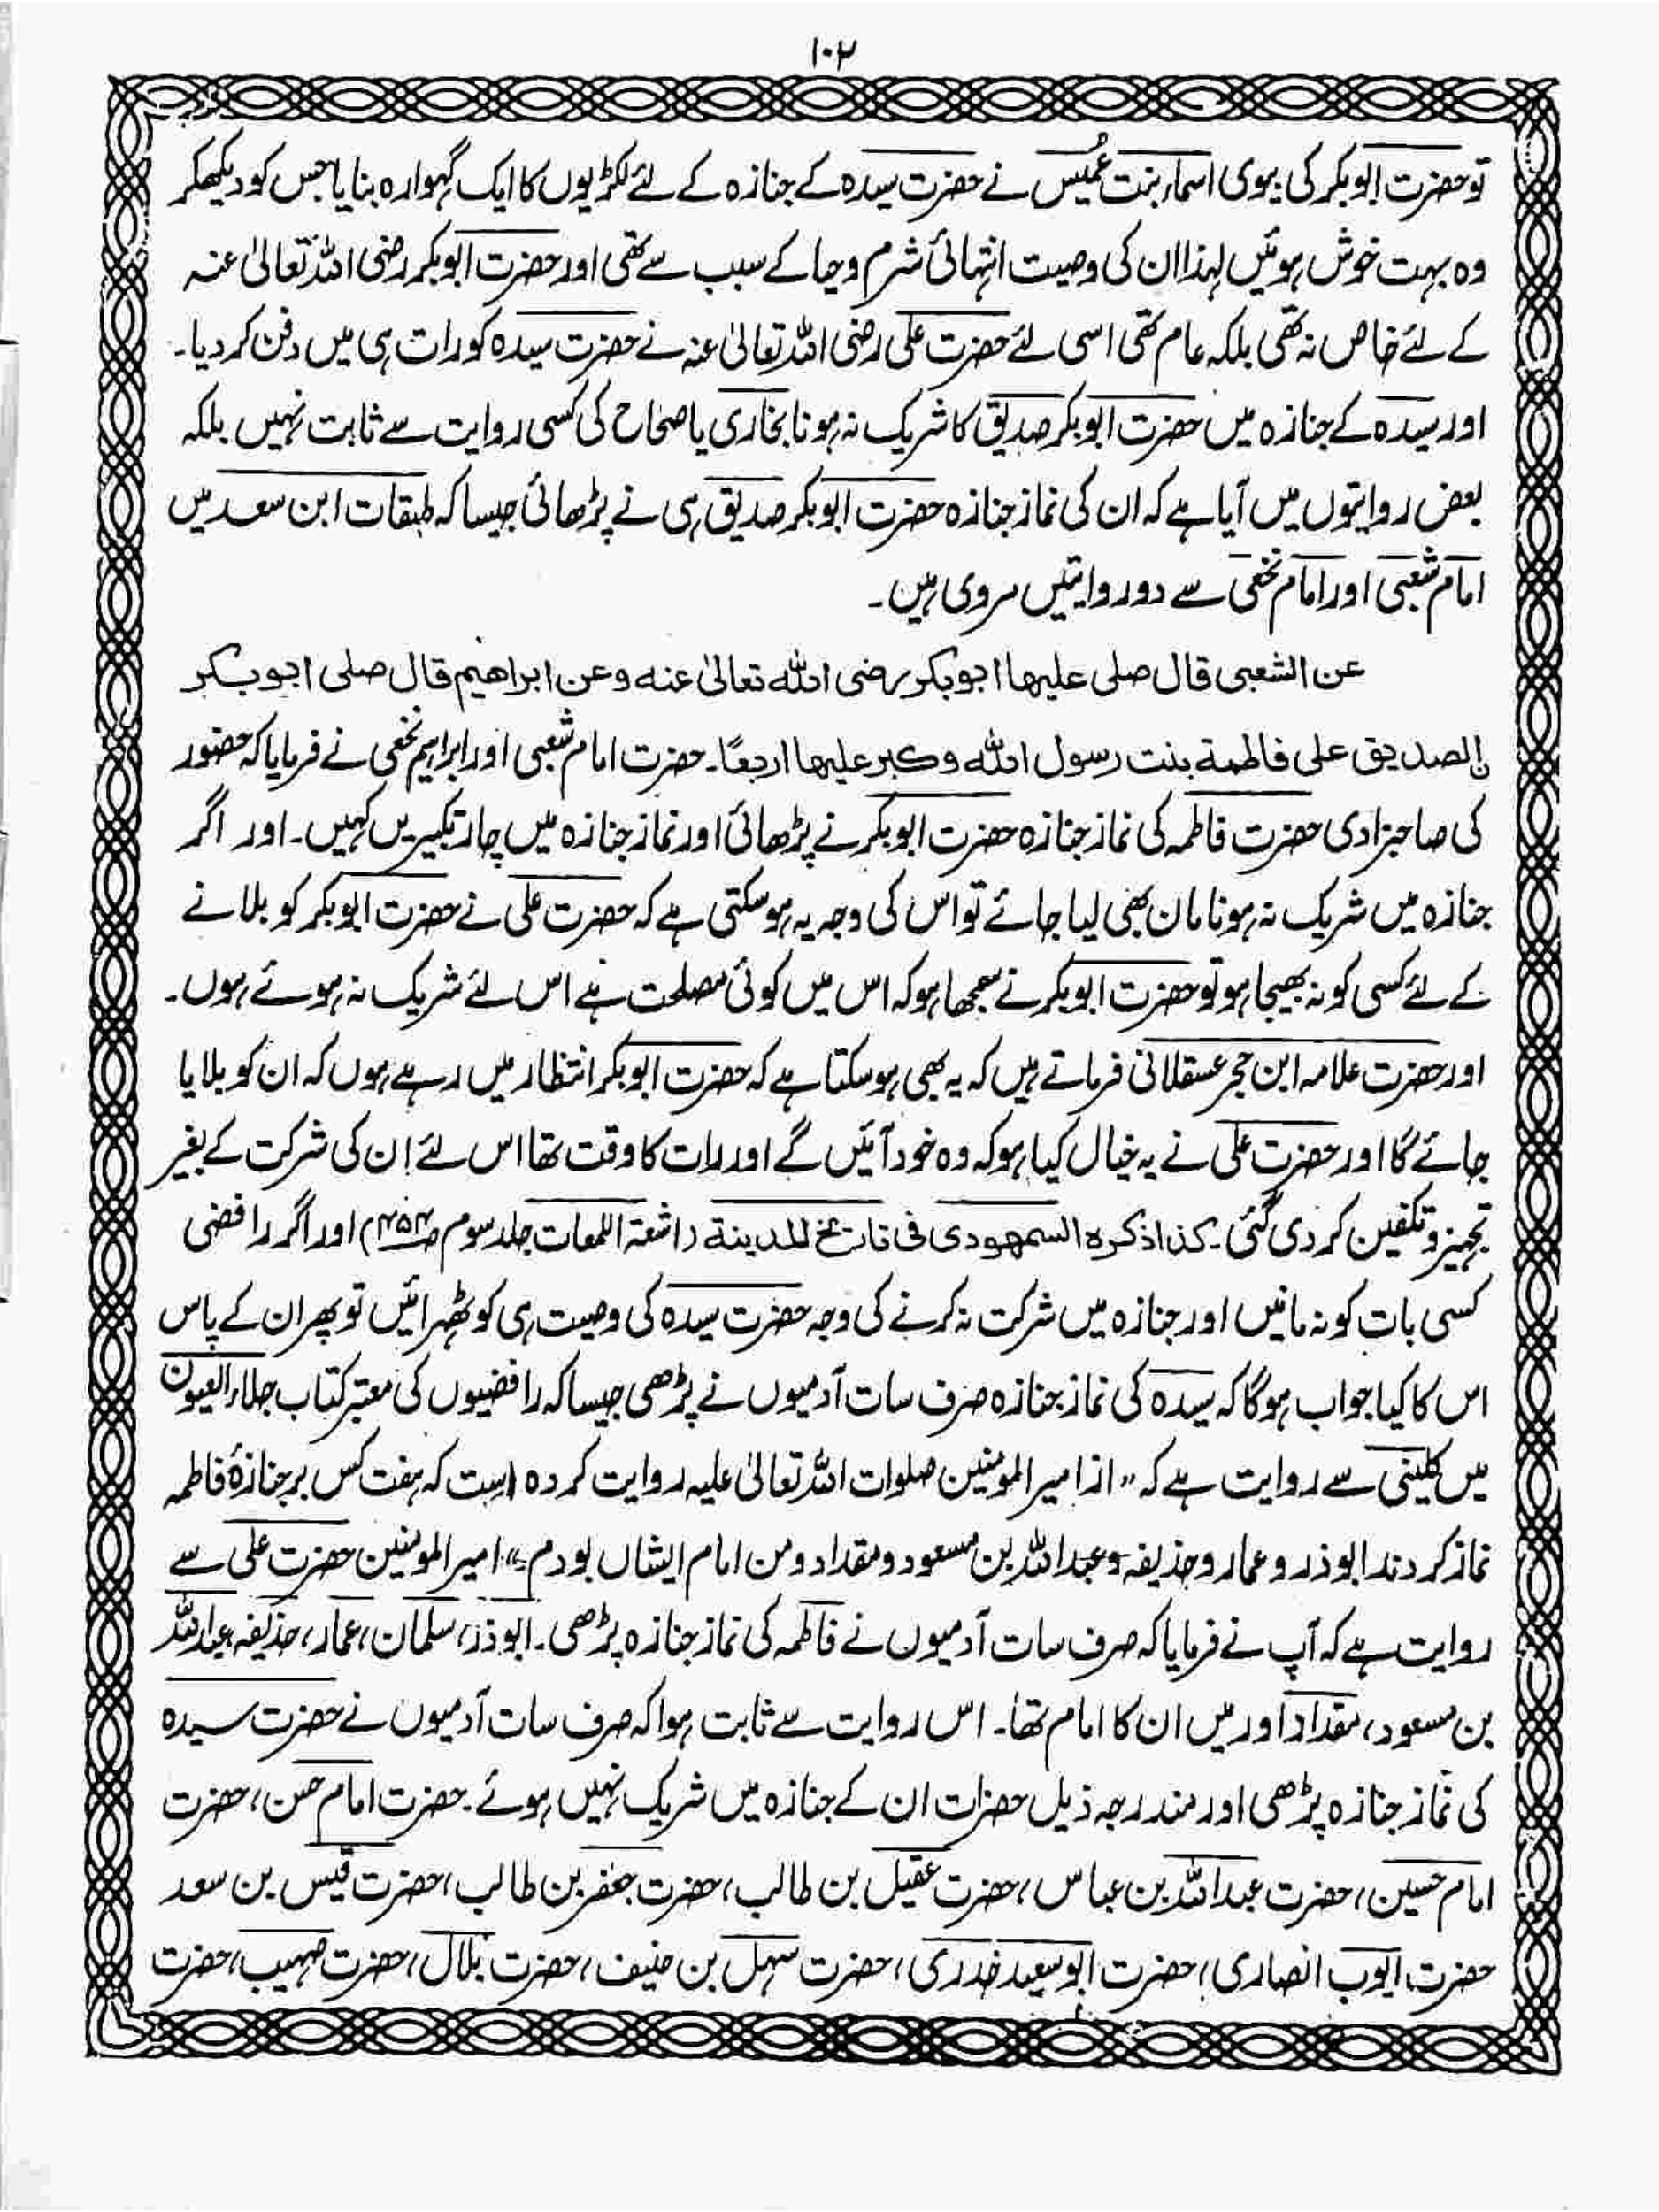 ۱۰۲
تو حضرت ابوبکر کی بیوی اسماء بنت عُمیس نے حضرت سیدہ کے جنازہ کے لئے لکڑیوں کا ایک گہوارہ بنایا جس کو دیکھکر
وہ بہت خوش ہوئیں لہذا ان کی وصیت انتہائی شرم وحیا کے سبب سے تھی اور حضرت ابوبکر رضی اللہ تعالیٰ عنہ
کے لئے خاص نہ تھی بلکہ عام تھی اسی لئے حضرت علی رضی اللہ تعالیٰ عنہ نے حضرت سیدہ کو رات ہی میں دفن کر دیا۔
اور سیدہ کے جنازہ میں حضرت ابوبکر صدیق کا شریک نہ ہونا بخاری یا صحاح کی کسی روایت سے ثابت نہیں بلکہ
بعض روایتوں میں آیا ہے کہ ان کی نماز جنازہ حضرت ابوبکر صدیق ہی نے پڑھائی جیسا کہ طبقات ابن سعد میں
امام شعبی اور امام نخعی سے دو روایتیں مروی ہیں۔
عن الشعبی قال صلی علیها ابوبکر رضی الله تعالیٰ عنه وعن ابراهیم قال صلی ابوبکر
الصدیق علی فاطمة بنت رسول الله وکبر علیها اربعًا۔ حضرت امام شعبی اور ابراہیم نخعی نے فرمایا کہ حضور
کی صاحبزادی حضرت فاطمہ کی نماز جنازہ حضرت ابوبکر نے پڑھائی اور نماز جنازہ میں چار تکبیریں کہیں۔ اور اگر
جنازہ میں شریک نہ ہونا مان بھی لیا جائے تو اس کی وجہ یہ ہوسکتی ہے کہ حضرت علی نے حضرت ابوبکر کو بلانے
کے لئے کسی کو نہ بھیجا ہو تو حضرت ابوبکر نے سمجھا ہو کہ اس میں کوئی مصلحت ہے اس لئے شریک نہ ہوئے ہوں۔
اور حضرت علامہ ابن حجر عسقلانی فرماتے ہیں کہ یہ بھی ہوسکتا ہے کہ حضرت ابوبکر انتظار میں رہے ہوں کہ ان کو بلایا
جائے گا اور حضرت علی نے یہ خیال کیا ہو کہ وہ خود آئیں گے اور رات کا وقت تھا اس لئے اِن کی شرکت کے بغیر
تجہیز و تکفین کر دی گئی۔ کذا ذکرہ السمہودی فی تاریخ المدینة (اشعۃ اللمعات جلد سوم ص۴۵۴) اور اگر رافضی
کسی بات کو نہ مانیں اور جنازہ میں شرکت نہ کرنے کی وجہ حضرت سیدہ کی وصیت ہی کو ٹھہرائیں تو پھر ان کے پاس
اس کا کیا جواب ہوگا کہ سیدہ کی نماز جنازہ صرف سات آدمیوں نے پڑھی جیسا کہ رافضیوں کی معتبر کتاب جلاء العیون
میں کلینی سے روایت ہے کہ "از امیر المومنین صلوات اللہ تعالیٰ علیہ روایت کردہ است کہ ہفت کس بر جنازۂ فاطمہ
نماز کردند ابوذر و عمار و حذیفہ و عبداللہ بن مسعود و مقداد و من امام ایشاں بودم۔" امیر المومنین حضرت علی سے
روایت ہے کہ آپ نے فرمایا کہ صرف سات آدمیوں نے فاطمہ کی نماز جنازہ پڑھی۔ ابوذر، سلمان، عمار، حذیفہ، عبداللہ
بن مسعود، مقداد اور میں ان کا امام تھا۔ اس روایت سے ثابت ہوا کہ صرف سات آدمیوں نے حضرت سیدہ
کی نماز جنازہ پڑھی اور مندرجہ ذیل حضرات ان کے جنازہ میں شریک نہیں ہوئے۔ حضرت امام حسن، حضرت
امام حسین، حضرت عبداللہ بن عباس، حضرت عقیل بن طالب، حضرت جعفر بن طالب، حضرت قیس بن سعد
حضرت ایوب انصاری، حضرت ابوسعید خدری، حضرت سہل بن حنیف، حضرت بلال، حضرت صہیب، حضرت